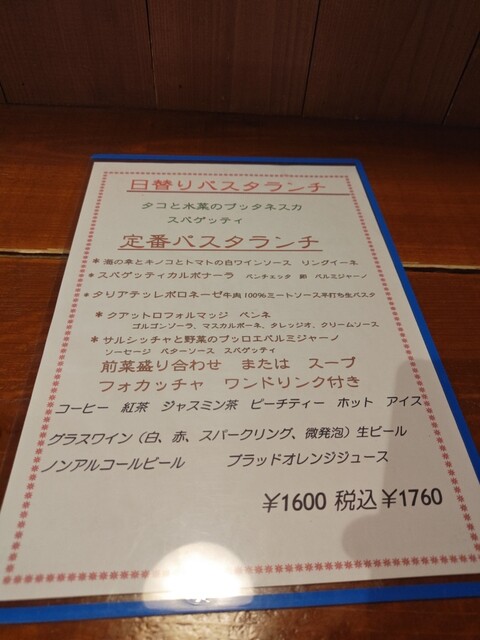 日替りパスタランチ
タコと水菜のプッタネスカ
スパゲッティ
定番パスタランチ
＊海の幸とキノコとトマトの白ワインソース リングイーネ
＊スパゲッティカルボナーラ ペンチェッタ 卵 パルミジャーノ
＊タリアテッレボロネーゼ牛肉100%ミートソース平打ち生パスタ
＊クアットロフォルマッジ ペンネ
ゴルゴンゾーラ、マスカルポーネ、タレッジオ、クリームソース
＊サルシッチャと野菜のブッロエパルミジャーノ
ソーセージ バターソース スパゲッティ
前菜盛り合わせ または スープ
フォカッチャ ワンドリンク付き
コーヒー 紅茶 ジャスミン茶 ピーチティー ホット アイス
グラスワイン（白、赤、スパークリング、微発泡）生ビール
ノンアルコールビール ブラッドオレンジジュース
￥1600 税込￥1760